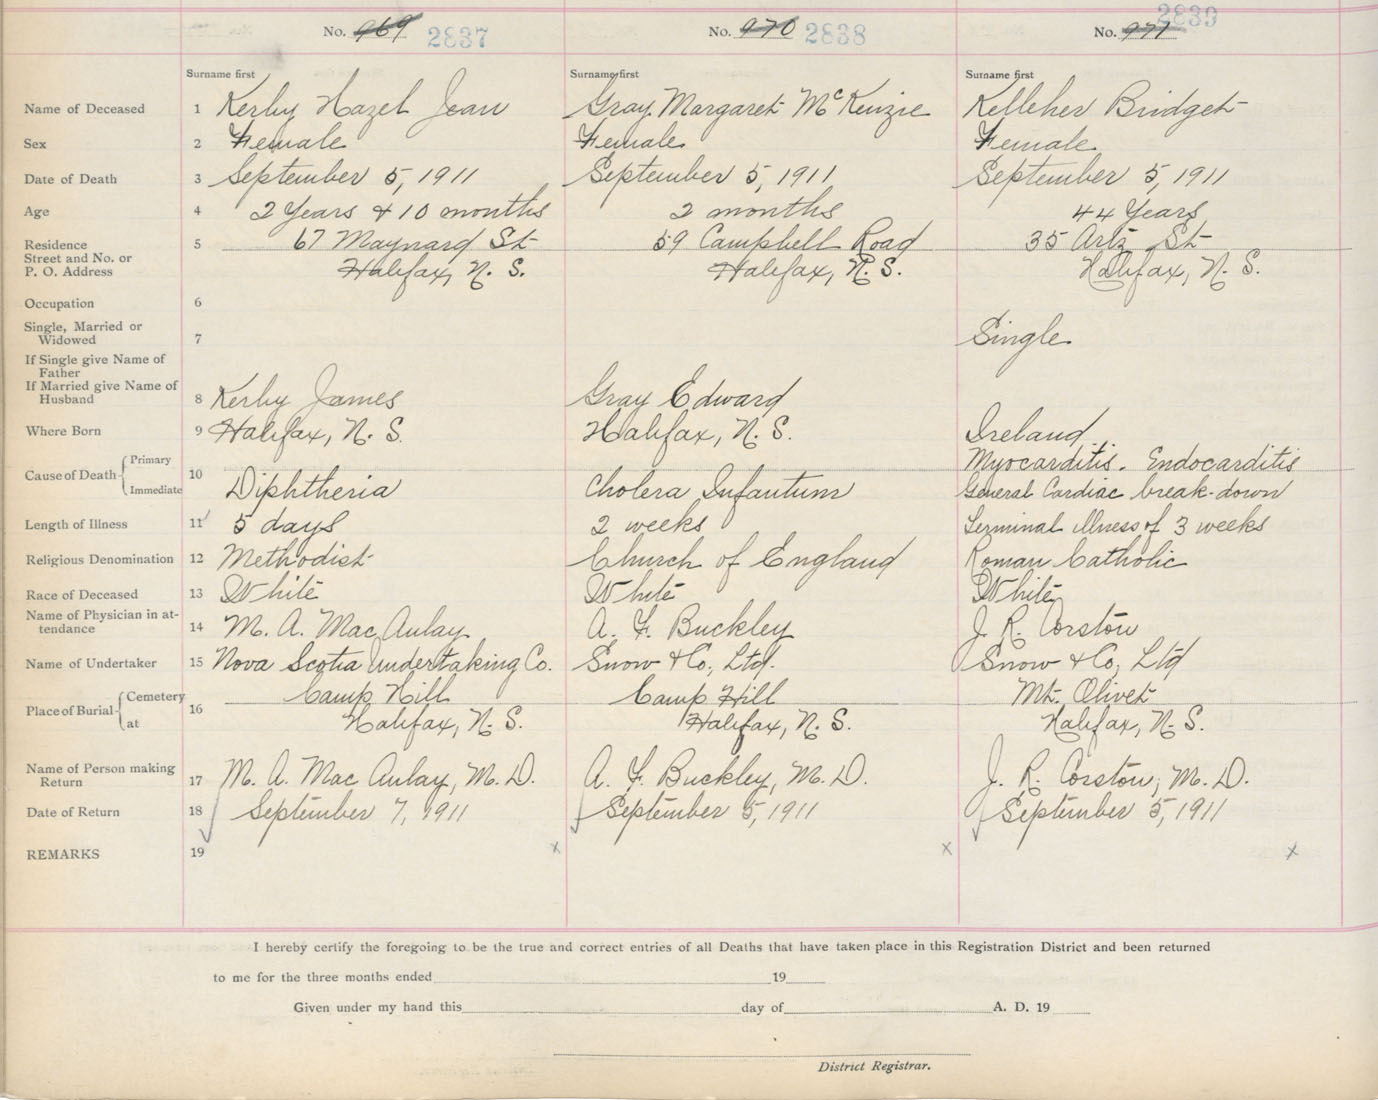 No. 969 2837 No. 970 2838 No. 971 2839
Surname first Surname first Surname first
Name of Deceased 1 Kerby Hazel Jean Gray Margaret McKenzie Kelleher Bridget
Sex 2 Female Female Female
Date of Death 3 September 5, 1911 September 5, 1911 September 5, 1911
Age 4 2 Years & 10 months 2 months 44 Years
Residence 5 67 Maynard St 59 Campbell Road 35 Artz St
Street and No. or
P. O. Address Halifax, N. S. Halifax, N. S. Halifax, N. S.
Occupation 6
Single, Married or
Widowed 7 Single
If Single give Name of
Father
If Married give Name of
Husband 8 Kerby James Gray Edward
Where Born 9 Halifax, N. S. Halifax, N. S. Ireland
Cause of Death Primary 10 Myocarditis. Endocarditis
Immediate Diphtheria Cholera Infantum General Cardiac break-down
Length of Illness 11 5 days 2 weeks Terminal illness of 3 weeks
Religious Denomination 12 Methodist Church of England Roman Catholic
Race of Deceased 13 White White White
Name of Physician in at-
tendance 14 M. A. MacAulay A. F. Buckley J. R. Corston
Name of Undertaker 15 Nova Scotia Undertaking Co. Snow & Co, Ltd. Snow & Co, Ltd
Place of Burial Cemetery 16 Camp Hill Camp Hill Mt. Olivet
at Halifax, N. S. Halifax, N. S. Halifax, N. S.
Name of Person making
Return 17 M. A. MacAulay, M. D. A. F. Buckley, M. D. J. R. Corston, M. D.
Date of Return 18 September 7, 1911 September 5, 1911 September 5, 1911
REMARKS 19 x x x
I hereby certify the foregoing to be the true and correct entries of all Deaths that have taken place in this Registration District and been returned
to me for the three months ended 19
Given under my hand this day of A. D. 19
District Registrar.